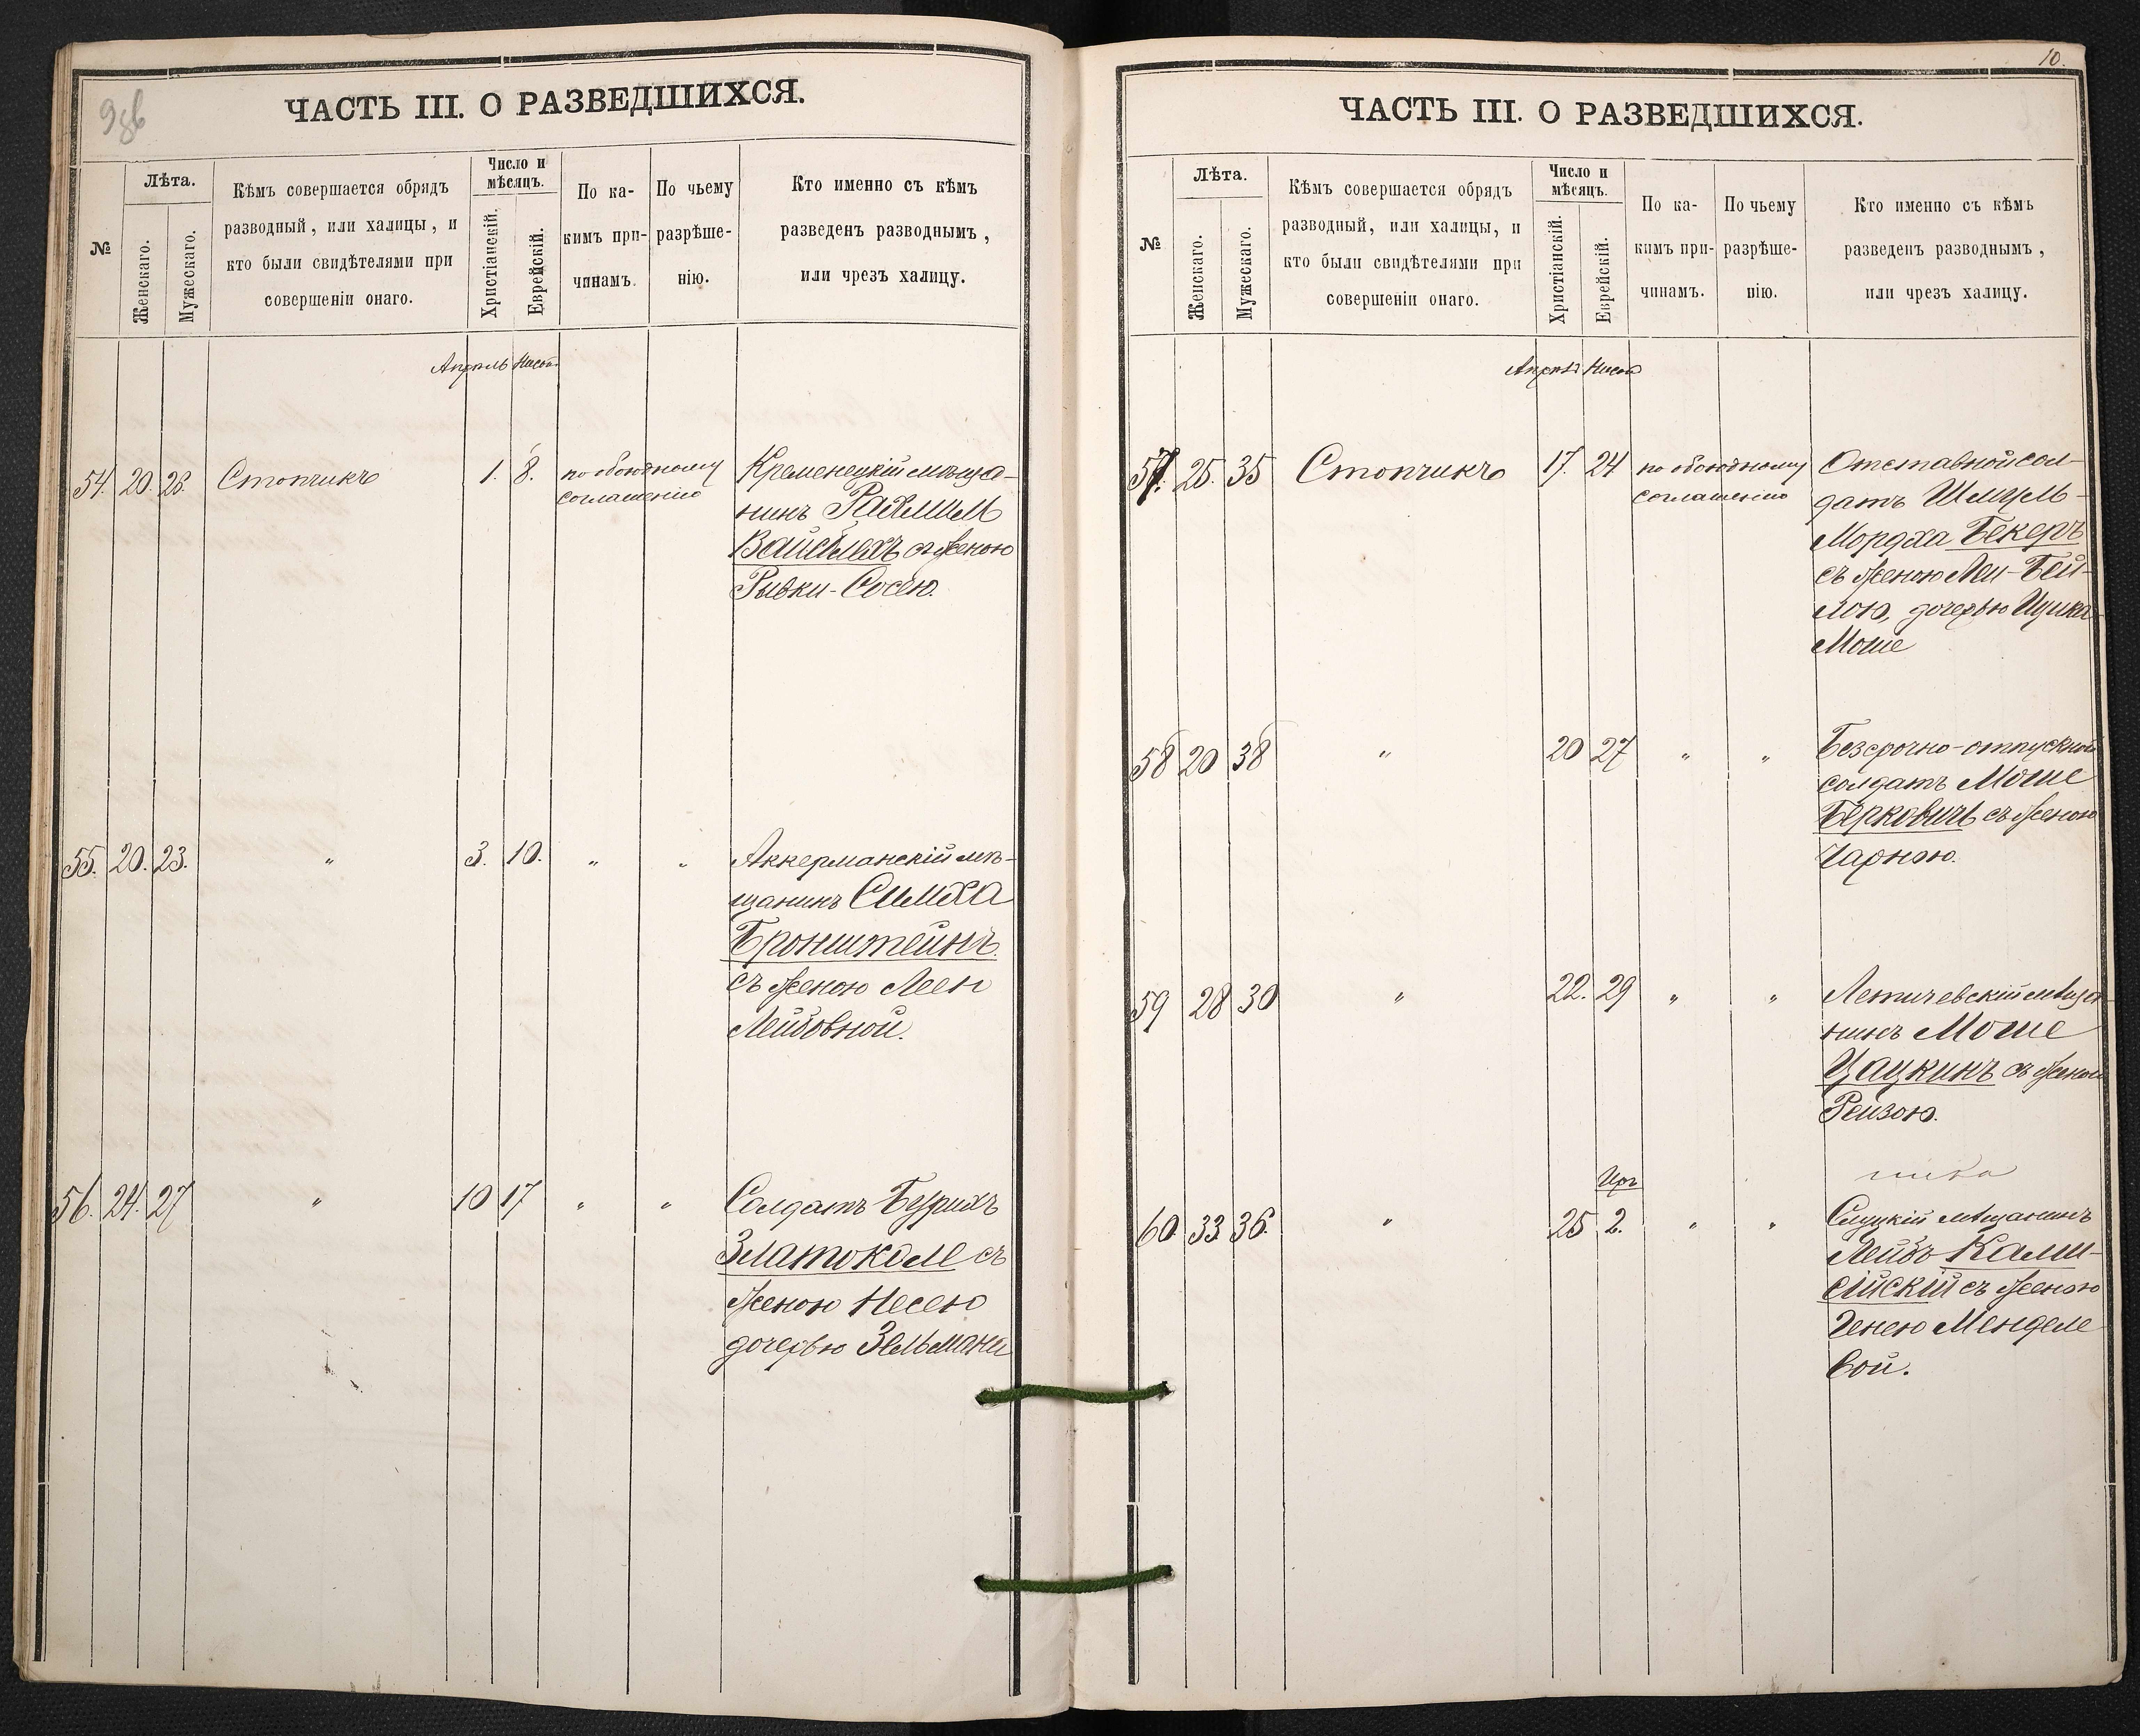 9об
ЧАСТЬ III. О РАЗВЕДШИХСЯ.
№
Лѣта.
Женскаго.
Мужескаго.
Кѣмъ совершается обрядъ
разводный, или халицы, и
кто были свидѣтелями при
совершеніи онаго.
Число и
мѣсяцъ.
Христіанскій.
Еврейскій.
По ка-
кимъ при-
чинамъ.
По чьему
разрѣше-
нію.
Кто именно съ кѣмъ
разведенъ разводнымъ,
или чрезъ халицу.
Апрѣль Нисонъ
54. 20. 23. Стопчикъ 1. 8. по обоюдному
соглашенію
Кременецкій мѣща-
нинъ Рахмил
Вайсблехъ съ женою
Рывки-Сосею.
55. 20. 23. " 3. 10. " "
Аккерманскій мѣ-
щанинъ Симха
Бронштейнъ
съ женою Леи
Лейбовной.
56. 24. 27 " 10 17 " "
Солдатъ Берихъ
Златокоме съ
женою Несею
дочерью Зельмана
10.
ЧАСТЬ III. О РАЗВЕДШИХСЯ.
№
Лѣта.
Женскаго.
Мужескаго.
Кѣмъ совершается обрядъ
разводный, или халицы, и
кто были свидѣтелями при
совершеніи онаго.
Число и
мѣсяцъ.
Христіанскій.
Еврейскій.
По ка-
кимъ при-
чинамъ.
По чьему
разрѣше-
нію.
Кто именно съ кѣмъ
разведенъ разводнымъ,
или чрезъ халицу.
Апрѣль Нисонъ
57. 25. 35 Стопчикъ 17. 24 по обоюдному
соглашенію
Отставной сол-
датъ Шмуль-
Мордха Бекеръ
съ женою Леи-Бей-
лою, дочерью Ицика-
Моше
58 20 38 " 20 27 " "
Безсрочно-отпускной
солдатъ Моше
Берковичъ съ женою
Чарною.
59 28 30 " 22. 29 " "
Летичевскій мѣща-
нинъ Моше
Цацкинъ съ женою
Рейзою.
Иръ
60. 33 36. " 25 2. " "
Слуцкій мѣщанинъ
Лейбъ Кали-
сійскій съ женою
Генею Менделе
вой.